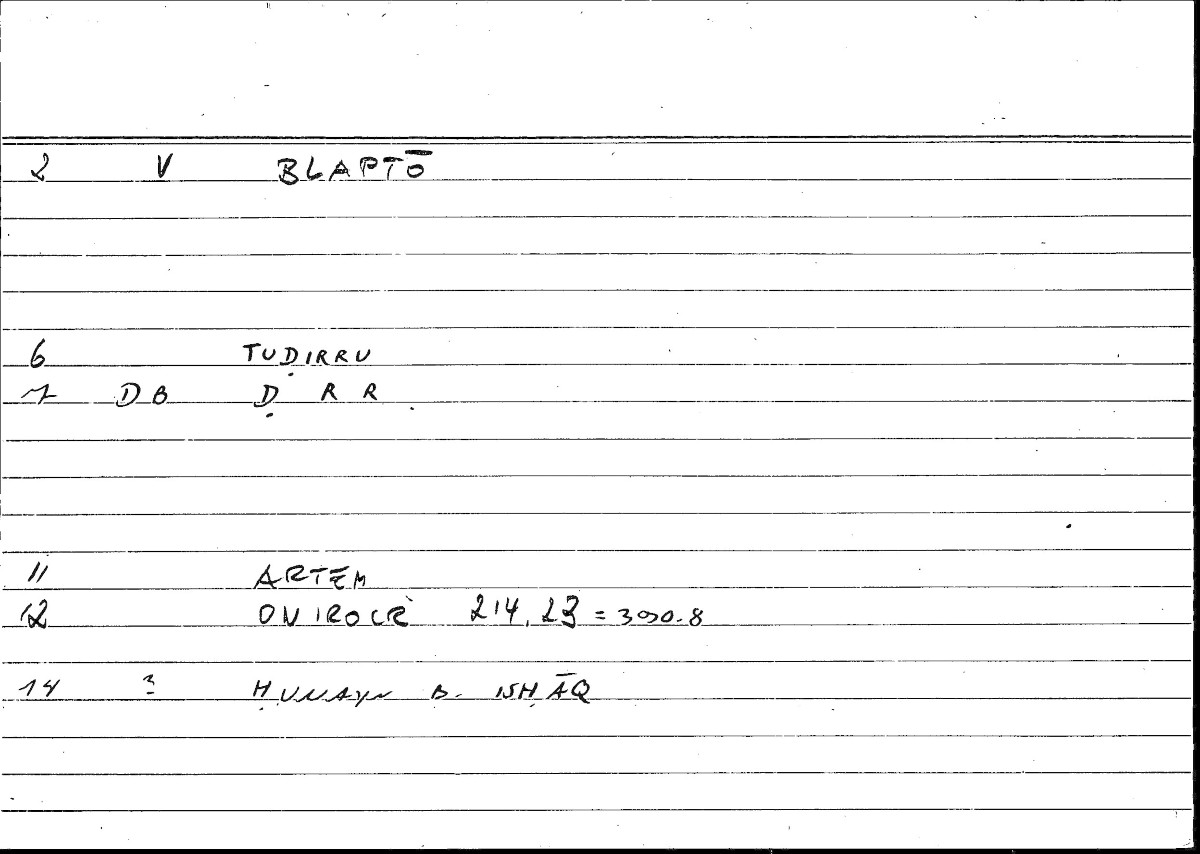 2 V BLAPTŌ
6 TUḌIRRU
7 DB Ḍ R R
11 ARTEM
12 ONIROCR 214,23 = 390.8
14 ? ḤUNAYN B. ISḤĀQ